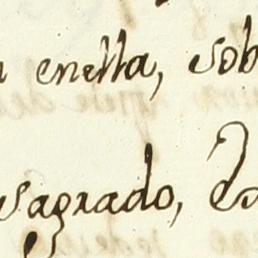 enella, sob
sagrado,